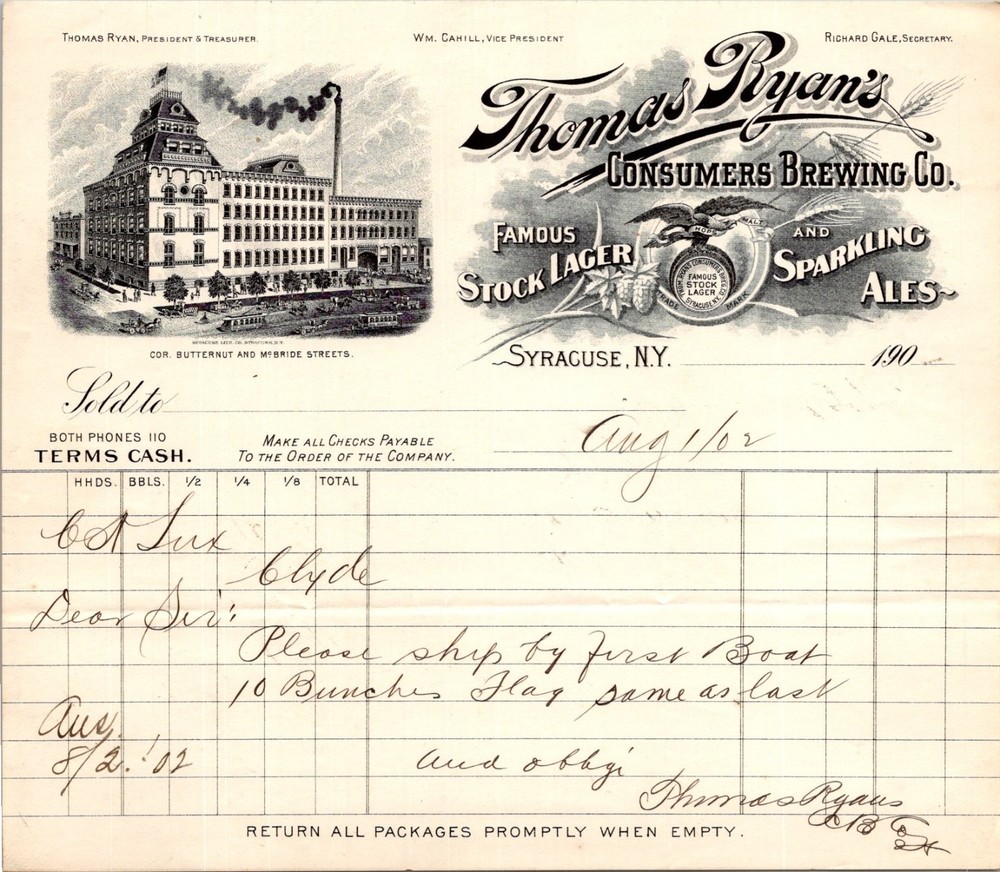 THOMAS RYAN, PRESIDENT & TREASURER.
WM. CAHILL, VICE PRESIDENT
RICHARD GALE, SECRETARY.
Thomas Ryan's
CONSUMERS BREWING CO.
FAMOUS
STOCK LAGER
AND
SPARKLING
ALES
HOPS MALT
FAMOUS
STOCK
LAGER
SYRACUSE, N.Y.
TRADE MARK
COR. BUTTERNUT AND McBRIDE STREETS.
SYRACUSE, N.Y. 190
Sold to
BOTH PHONES 110
TERMS CASH.
MAKE ALL CHECKS PAYABLE
TO THE ORDER OF THE COMPANY.
Aug 1/02
HHDS. BBLS. 1/2 1/4 1/8 TOTAL
C A Lux
Clyde
Dear Sir:
Please ship by first Boat
10 Bunches Flag same as last
Ans.
8/2.'02
and obbgi
Thomas Ryans
C B Co
RETURN ALL PACKAGES PROMPTLY WHEN EMPTY.